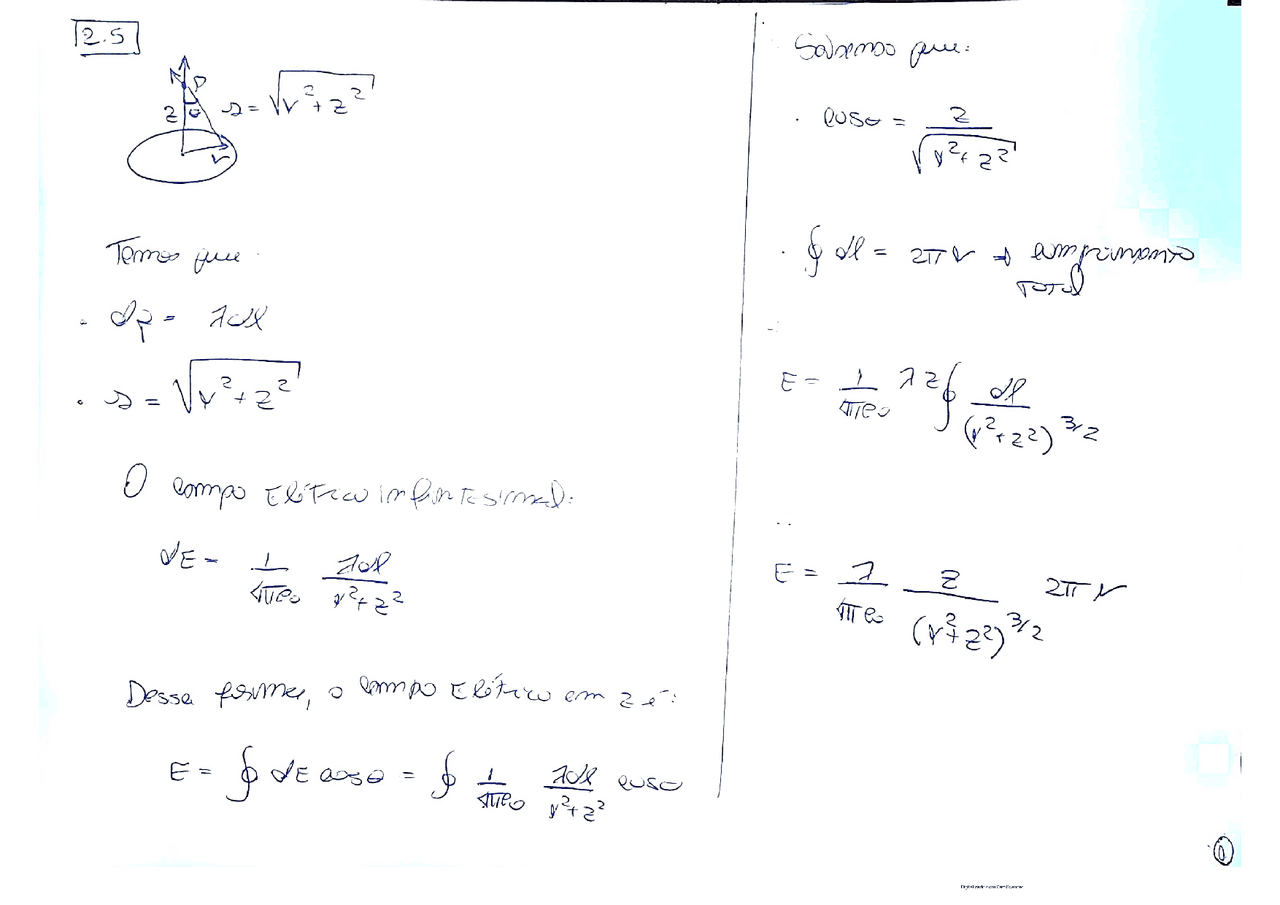 2.5
P
z θ r
𝓇 = √(r² + z²)
Temos que:
. dq = λdl
. 𝓇 = √(r² + z²)
O campo Elétrico infinitesimal:
dE = 1/(4πε₀) λdl/(r² + z²)
Dessa forma, o campo Elétrico em z é:
E = ∮ dE cosθ = ∮ 1/(4πε₀) λdl/(r² + z²) cosθ
Sabemos que:
. cosθ = z/√(r² + z²)
. ∮ dl = 2πr → comprimento
total
E = 1/(4πε₀) λz ∮ dl/(r² + z²)^3/2
E = λ/(4πε₀) z/(r² + z²)^3/2 2πr